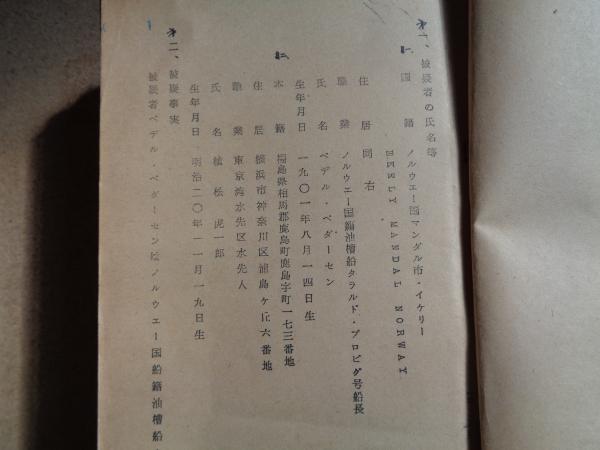 第一、被疑者の氏名等
一、国籍 ノルウエー国マンダル市・イケリー
EEKLY MANDAL NORWAY
住居 同右
職業 ノルウエー国籍油槽船タラルド・ブロビグ号船長
氏名 ペデル・ペダーセン
生年月日 一九〇一年八月一四日生
二、本籍 福島県相馬郡鹿島町鹿島字町一七三番地
住居 横浜市神奈川区浦島ヶ丘六番地
職業 東京湾水先区水先人
氏名 植松虎一郎
生年月日 明治二〇年一一月一九日生
第二、被疑事実
被疑者ペデル・ペダーセンはノルウエー国船籍油槽船